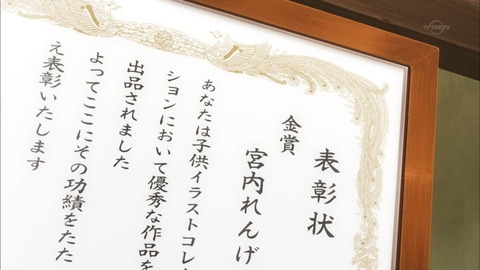 表彰状
金賞
宮内れんげ
あなたは子供イラストコレク
ションにおいて優秀な作品を
出品されました
よってここにその功績をたた
え表彰いたします
TV TOKYO